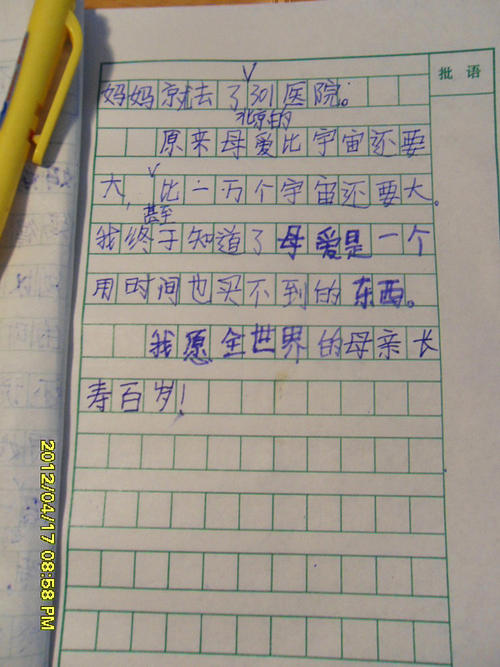 批语
妈妈就去了301医院。
北京的
原来母爱比宇宙还要
大,比一万个宇宙还要大。
甚至
我终于知道了母爱是一个
用时间也买不到的东西。
我愿全世界的母亲长
寿百岁!
2012/04/17 08:58 PM